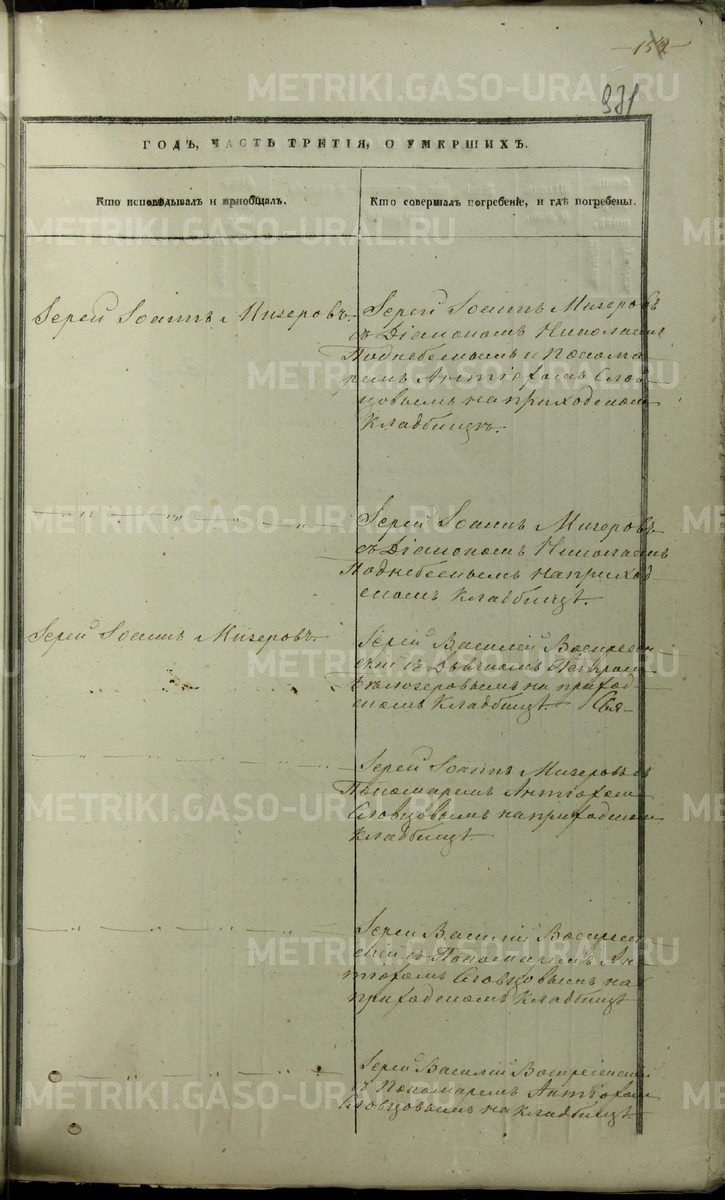 152
931
ГОДѢ, ЧАСТЬ ТРЕТІЯ, О УМЕРШИХЪ.
Кто исповѣдывалъ и пріобщалъ.
Кто совершалъ погребеніе, и гдѣ погребены.
Іерей Іоаннъ Мизеровъ.
Іерей Іоаннъ Мизеровъ
съ Діакономъ Николаемъ
Поднебеснымъ и Понома
ремъ Антіохомъ Слов
цовымъ на приходскомъ
кладбищѣ.
— " — " — " — " —
Іерей Іоаннъ Мизеровъ
съ Діакономъ Николаемъ
Поднебеснымъ на приход
скомъ кладбищѣ.
Іерей Іоаннъ Мизеровъ.
Іерей Василій Воскресен
скій съ Дьячкомъ Петромъ
на приход
скомъ кладбищѣ.
Іерей Іоаннъ Мизеровъ съ
Пономаремъ Антіохомъ
Словцовымъ на приходскомъ
кладбищѣ.
— " — " — " — " —
Іерей Василій Воскресен
скій съ Пономаремъ Ан
тіохомъ Словцовымъ на
приходскомъ кладбищѣ
— " — " — " —
Іерей Василій Воскресенскій
съ Пономаремъ Антіохомъ
Словцовымъ на кладбищѣ.
METRIKI.GASO-URAL.RU